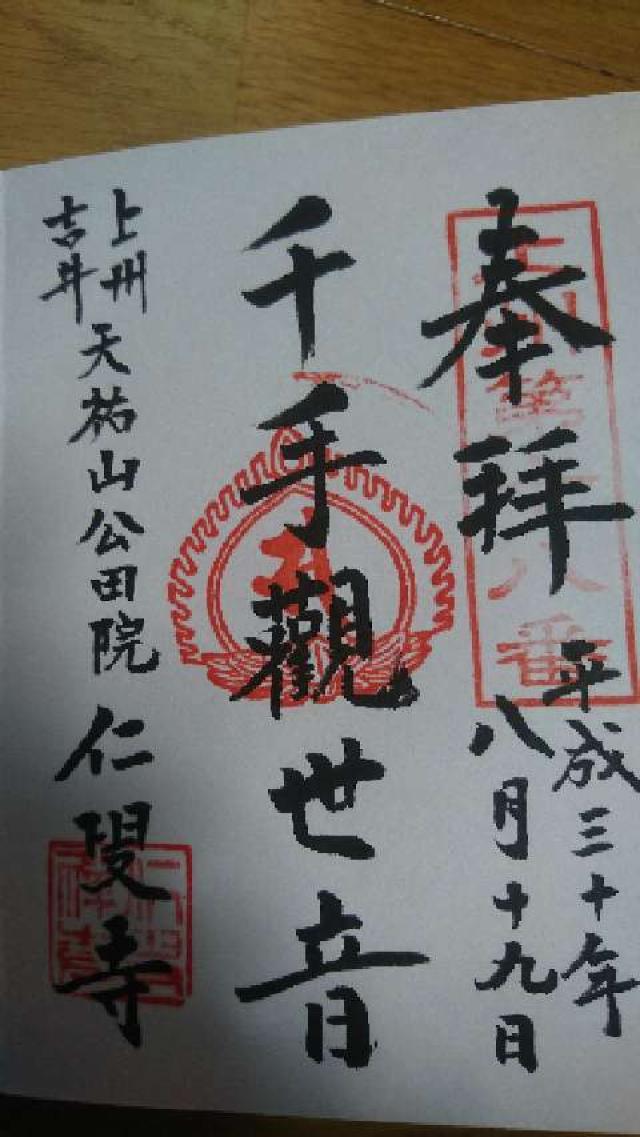 奉拝
平成三十年
八月十九日
千手觀世音
上州
吉井
天祐山公田院
仁叟寺